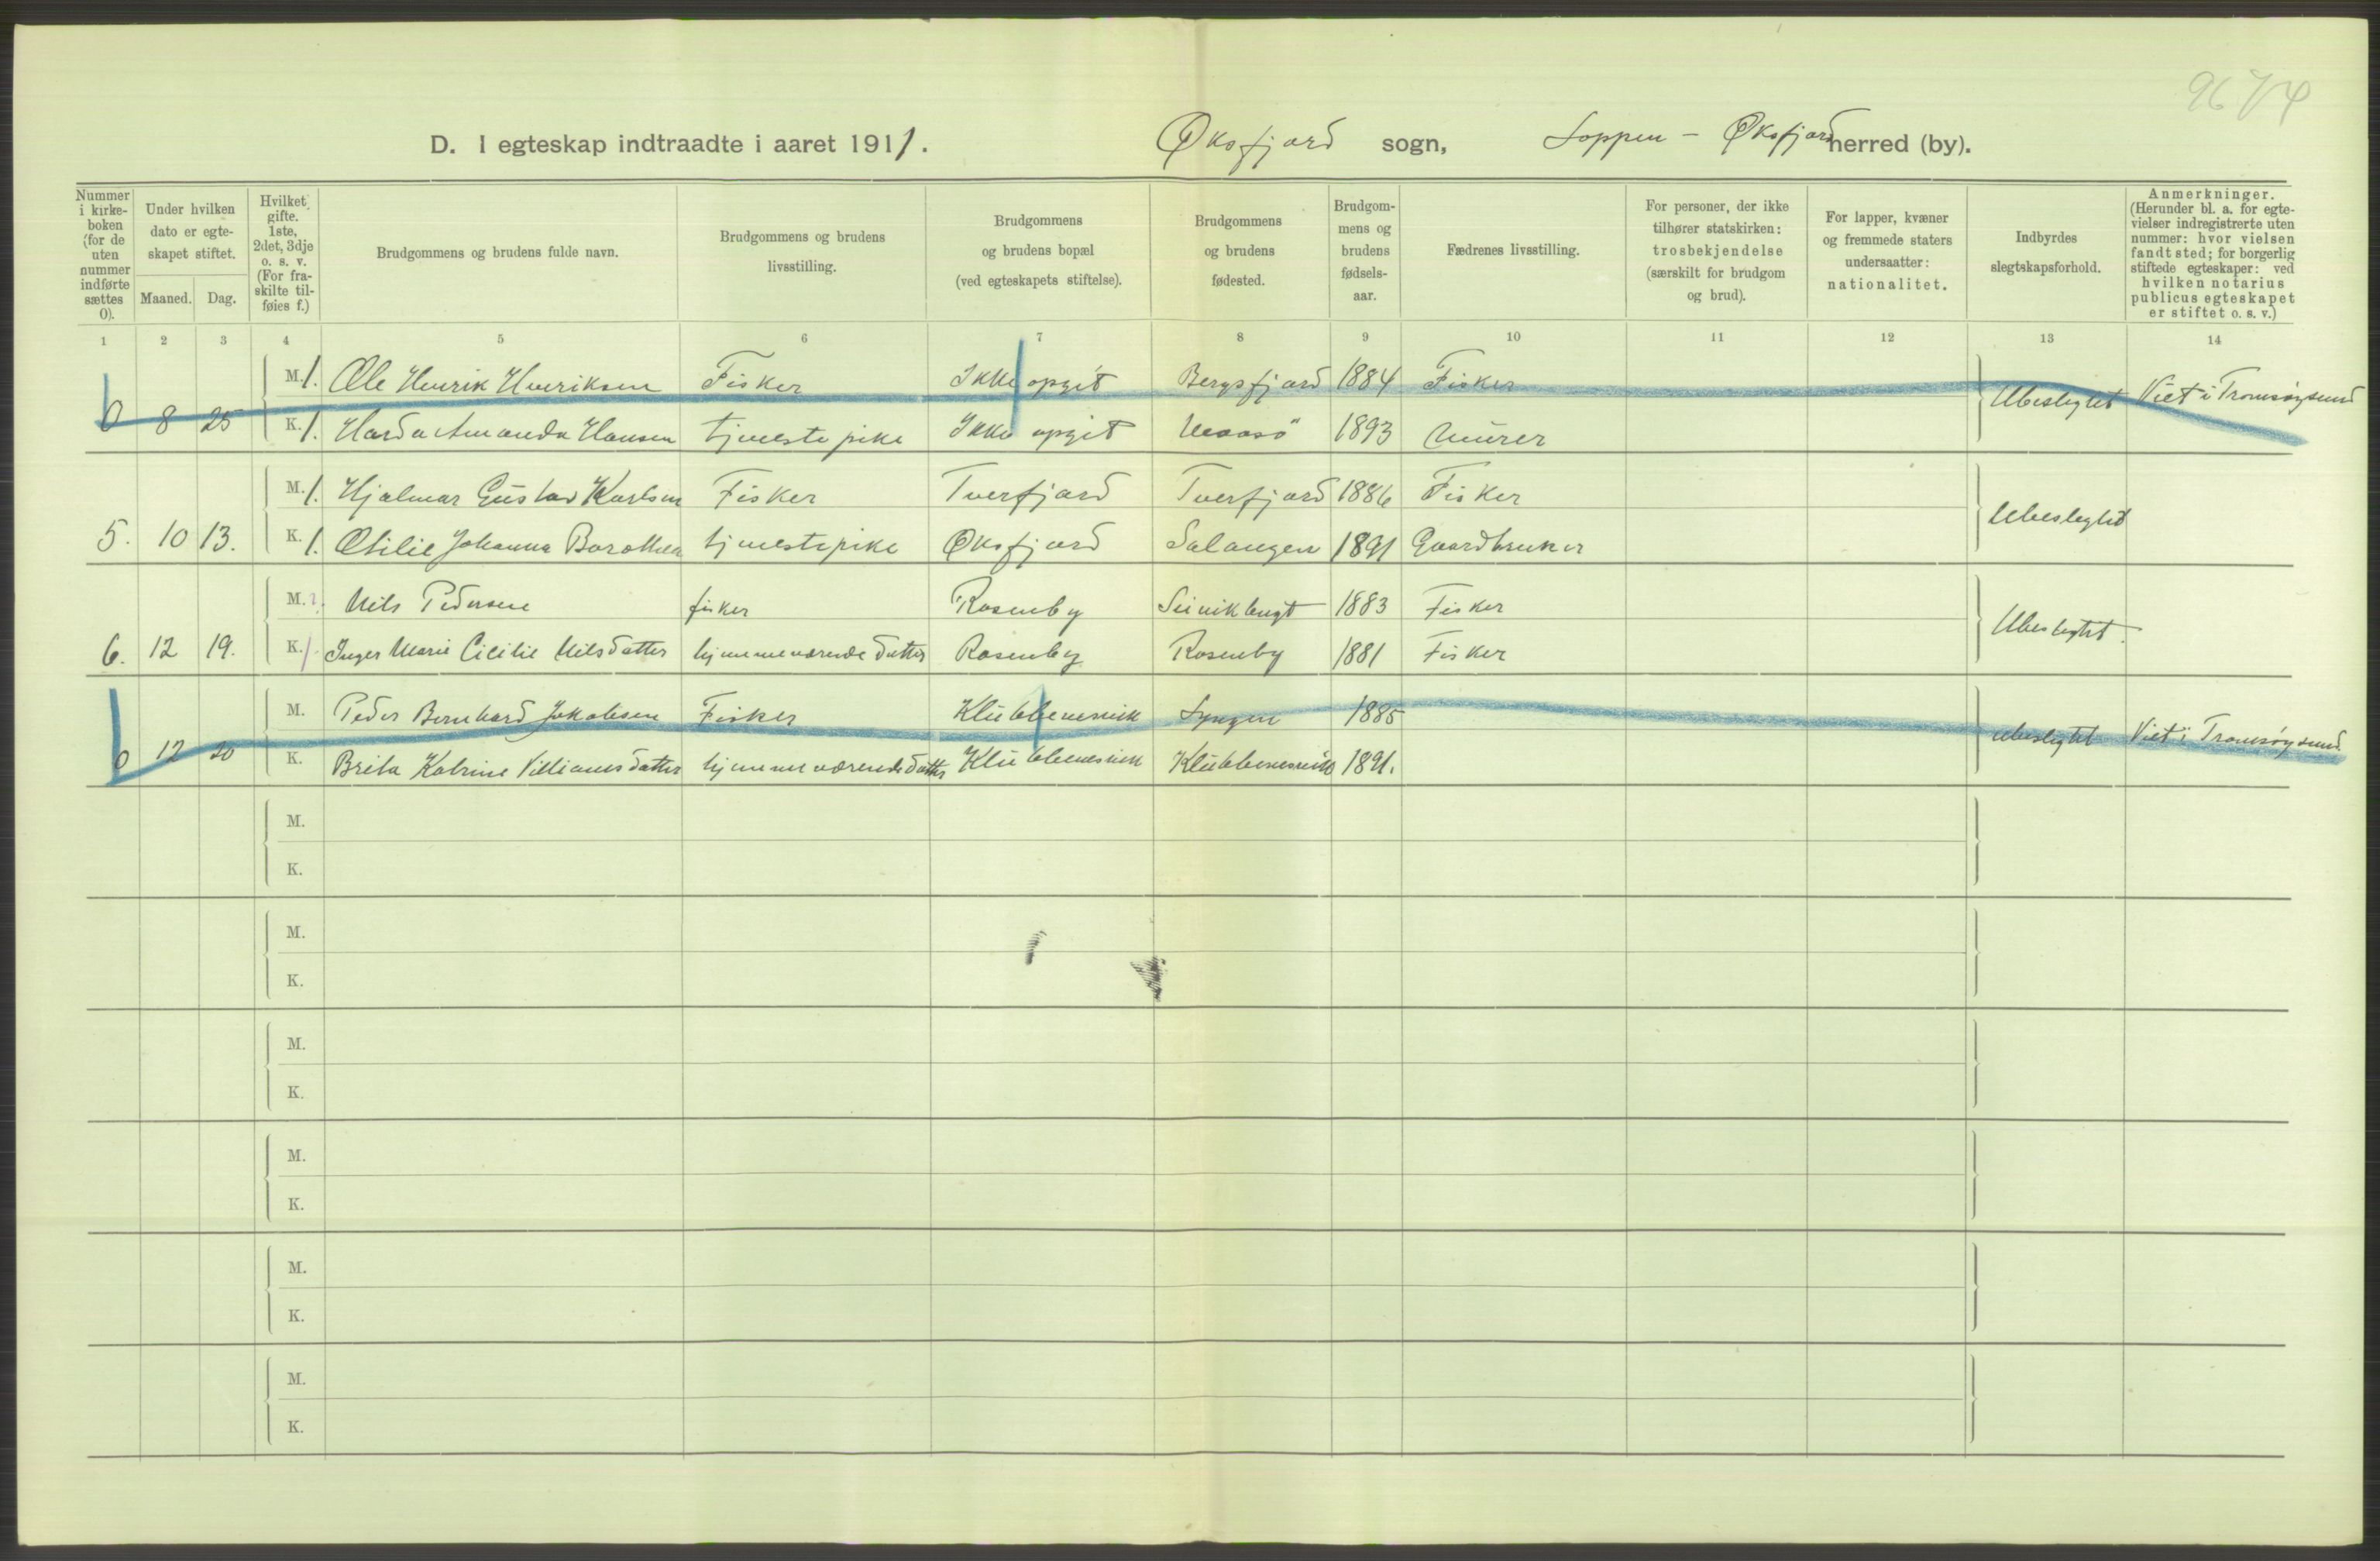 9674
D. I egteskap indtraadte i aaret 1911. Øksfjord sogn, Loppen - Øksfjord herred (by).
Nummer i kirke-boken (for de uten nummer indførte sættes 0).
Under hvilken dato er egte-skapet stiftet.
Maaned. Dag.
Hvilket gifte. 1ste, 2det, 3dje o. s. v. (For fra-skilte til-føies f.)
Brudgommens og brudens fulde navn.
Brudgommens og brudens livsstilling.
Brudgommens og brudens bopæl (ved egteskapets stiftelse).
Brudgommens og brudens fødested.
Brudgom-mens og brudens fødsels-aar.
Fædrenes livsstilling.
For personer, der ikke tilhører statskirken: trosbekjendelse (særskilt for brudgom og brud).
For lapper, kvæner og fremmede staters undersaatter: nationalitet.
Indbyrdes slegtskapsforhold.
Anmerkninger. (Herunder bl. a. for egte-vielser indregistrerte uten nummer: hvor vielsen fandt sted; for borgerlig stiftede egteskaper: ved hvilken notarius publicus egteskapet er stiftet o. s. v.)
1 2 3 4 5 6 7 8 9 10 11 12 13 14
M. 1. Ole Henrik Henriksen Fisker Ikke opgit Bergsfjord 1884 Fisker
0 8 25 Ubeslegtet Viet i Tromsøysund
K. 1. Amanda Hansen tjenestepike Ikke opgit 1893 Murer
M. 1. Hjalmar Gustav Karlsen Fisker Tverfjord Tverfjord 1886 Fisker
5. 10 13. Ubeslegtet
K. 1. Otilie Johanna tjenestepike Øksfjord Salangen 1891 Gaardbruker
M. 2. Nils Pedersen fisker Rosenby 1883 Fisker
6. 12 19. Ubeslegtet.
K. 1. Inger Marie Cicilie Nilsdatter hjemmeværende datter Rosenby Rosenby 1881 Fisker
M. Peder Bernhard Jakobsen Fisker Klubbenesvik Lyngen 1885
0 12 20 Ubeslegtet Viet i Tromsøysund
K. Brita Katrine Villiamsdatter hjemmeværende datter Klubbenesvik Klubbenesvik 1891.
M.
K.
M.
K.
M.
K.
M.
K.
M.
K.
M.
K.